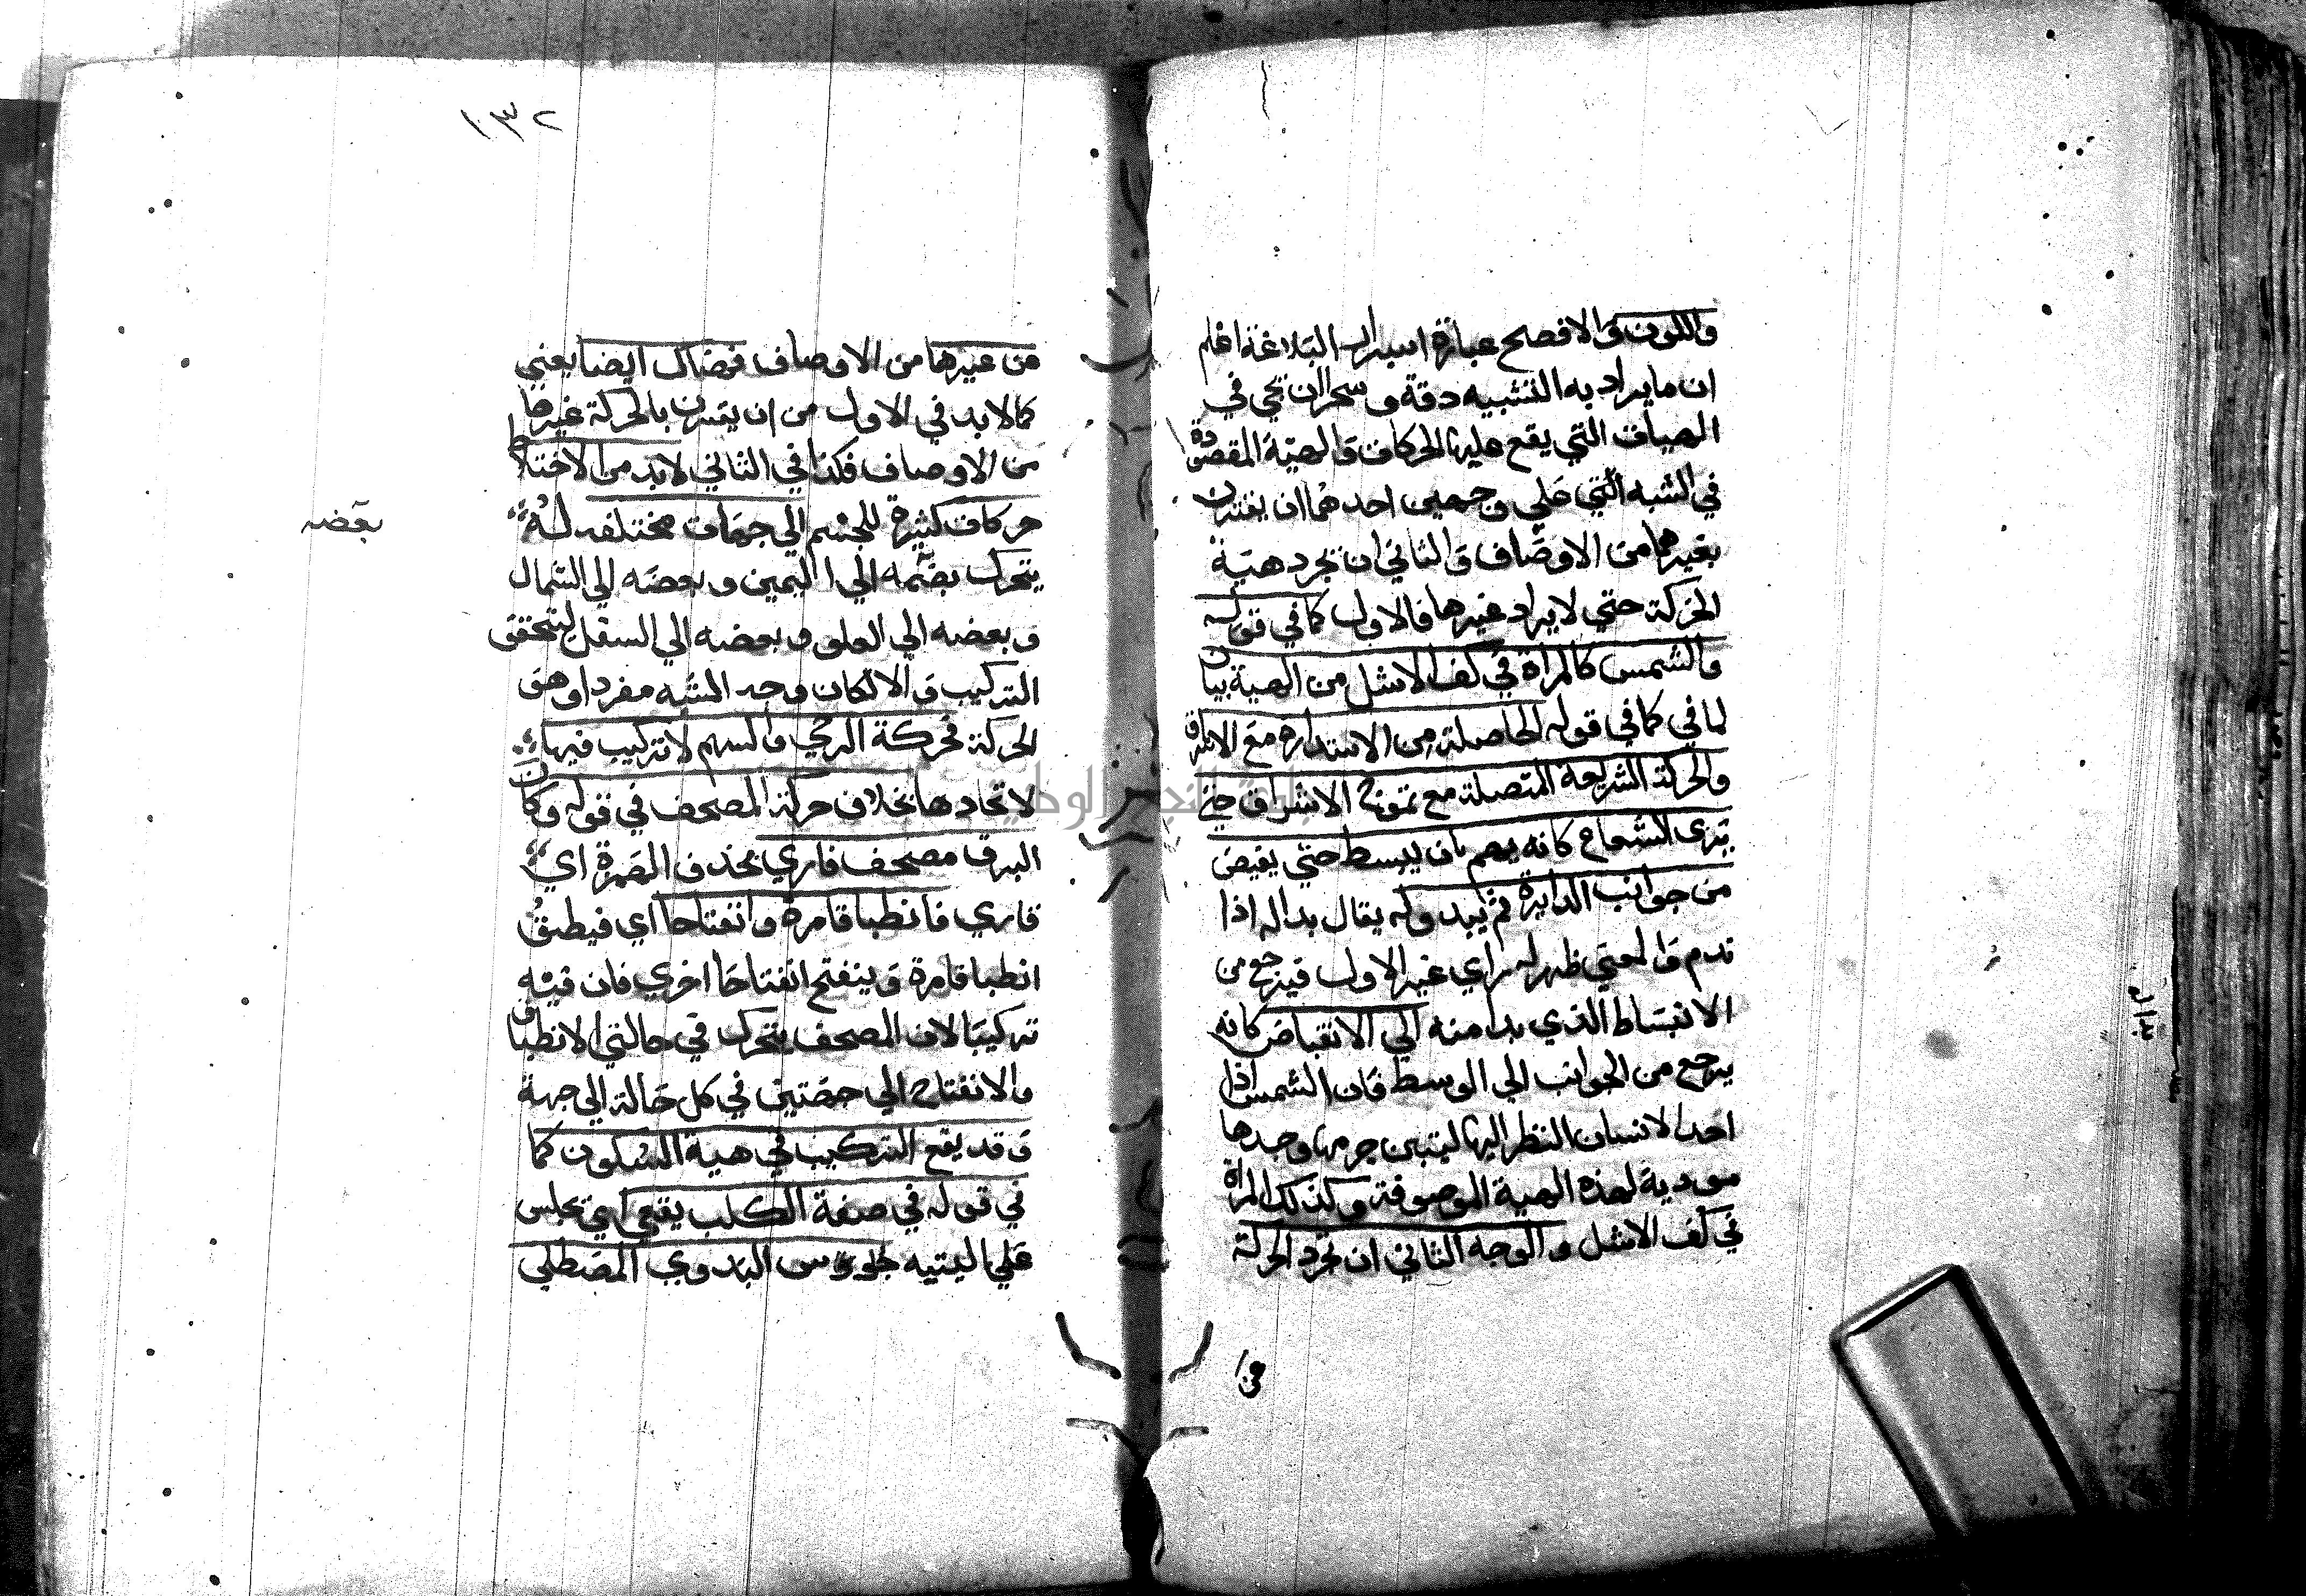 واللون والاوضح عبارة اسرار البلاغة اعلم
ان ما يزاد به التشبيه دقة وسحرا ان تجي في
الهيات التي يقع عليها الحركات والهية المقصودة
في الشبه التي علي وجهين احدهما ان يقترن
بغيرها من الاوصاف والثاني ان تجرد هية
الحركة حتي لا يراد غيرها فالاول كما في قوله
والشمس كالمراة في كف الاشل من الهية بيان
لما في كما في قوله الحاصلة من الاستدارة مع الاشراق
والحركة السريعة المتصلة مع تموج الاشراق حتي
تري الشعاع كانه يهم بان ينبسط حتي يفيض
من جوانب الدايرة ثم يبدو له يقال بدا له اذا
ندم والمعني ظهر له راي غير الاول فيرجع من
الانبساط الذي بدا منه الي الانقباض كانه
يرجع من الجوانب الي الوسط فان الشمس اذا
احد الانسان النظر اليها ليتبين جرمها وجدها
مودية لهذه الهية الموصوفة وكذلك المراة
في كف الاشل والوجه الثاني ان تجرد الحركة
عن
١٣٢
عن غيرها من الاوصاف فهناك ايضا يعني
كما لا بد في الاول من ان يقترن بالحركة غيرها
من الاوصاف فكذا في الثاني لا بد من اختلاط
حركات كثيرة للجسم الي جهات مختلفه له
بعضه
يتحرك بعضه الي اليمين وبعضه الي الشمال
وبعضه الي العلو وبعضه الي السفل ليتحقق
التركيب والا لكان وجه الشبه مفردا وهو
الحركة فحركة الرحي والسهم لا تركيب فيها
لاتحادها بخلاف حركة المصحف في قوله وكان
البرق مصحف قاري بحذف الهمزة اي
قاري فانطباقا مرة وانفتاحا اي فينطبق
انطباقا مرة وينفتح انفتاحا اخري فان فيه
تركيبا لان المصحف يتحرك في حالتي الانطباق
والانفتاح الي جهتين في كل حالة الي جهة
وقد يقع التركيب في هية السكون كما
في قوله في صفة الكلب يقعي اي يجلس
علي اليتيه جلوس البدوي المصطلي